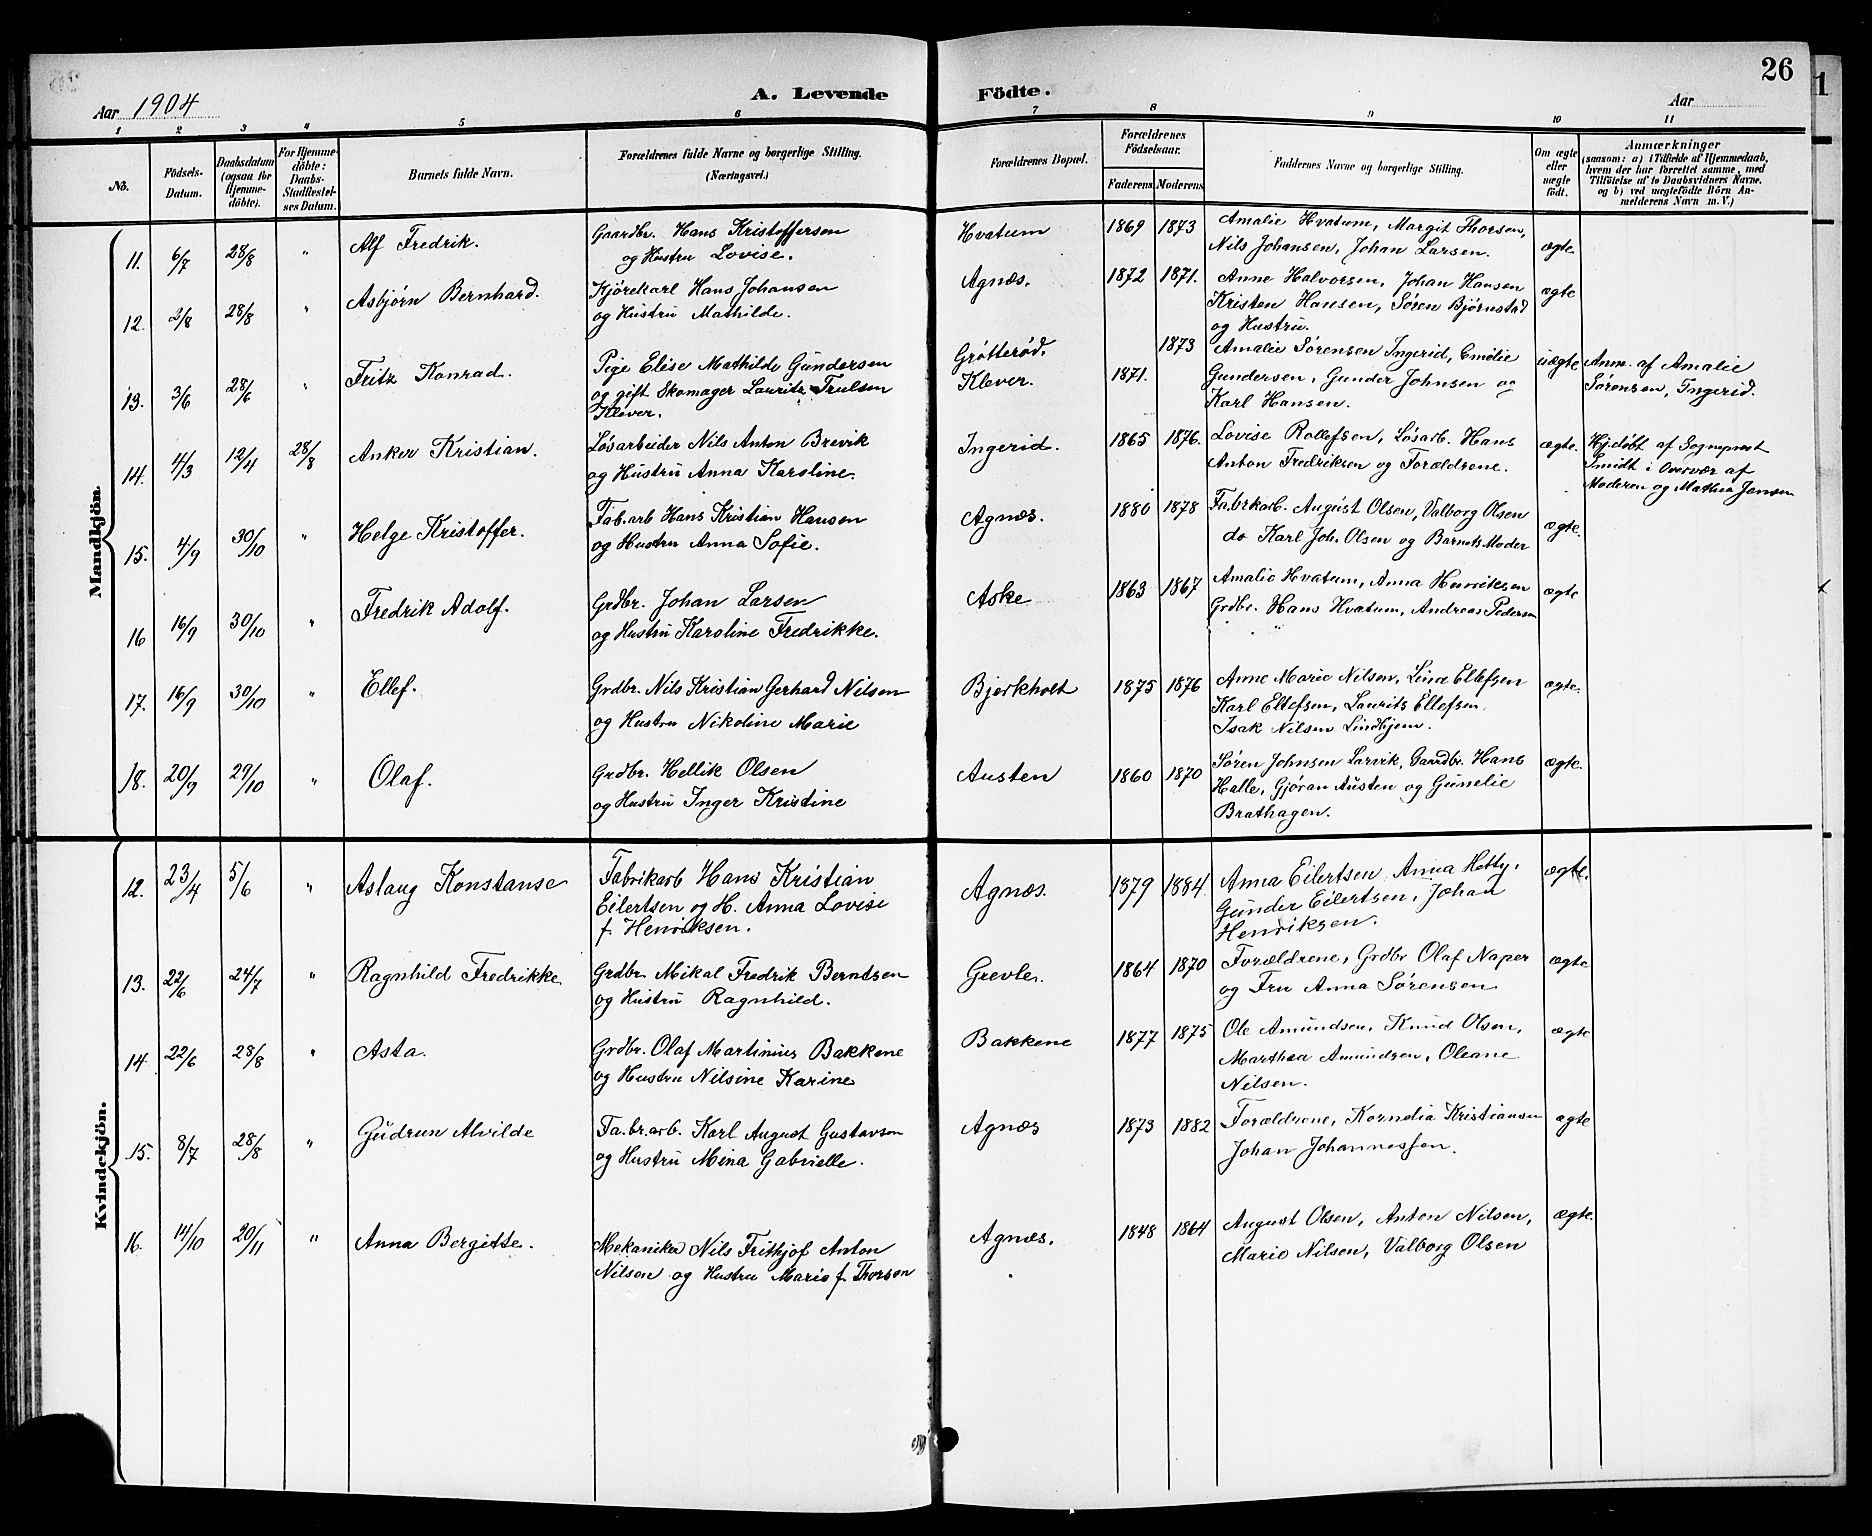 26
Aar 1904
A. Levende Födte.
Aar
1 2 3 4 5 6 7 8 9 10 11
No.
Födsels-Datum.
Daabsdatum (ogsaa for Hjemme-döbte).
For Hjemme-döbte: Daabs-Stadfestel-ses Datum.
Barnets fulde Navn.
Forældrenes fulde Navne og borgerlige Stilling. (Næringsvei.)
Forældrenes Bopæl.
Forældrenes Födselsaar.
Faderens Moderens
Faddernes Navne og borgerlige Stilling.
Om ægte eller uægte födt.
Anmærkninger
(saasom: a) i Tilfælde af Hjemmedaab,
hvem der har forrettet samme, med
Tilföielse af to Daabsvidners Navne.
og b) ved uægtefödte Börn An-
melderens Navn m. V.)
Mandkjön.
11. 6/7 28/8 " Alf Fredrik.
Gaardbr. Hans Kristoffersen
og Hustru Lovise.
Hvatum 1869 1873
Amalie Hvatum, Margit Thorsen,
Nils Johansen, Johan Larsen.
ægte
12. 2/8 28/8 " Asbjørn Bernhard.
Kjørekarl Hans Johansen
og Hustru Mathilde.
Agnæs. 1872 1871.
Anne Halvorsen, Johan Hansen
Kristen Hansen, Søren Bjørnstad
og Hustru.
ægte
13. 3/6 28/6 " Fritz Konrad.
Pige Elise Mathilde Gundersen
og gift Skomager Lauritz Trulsen
Klever.
Grøtterød. 1873
Klever. 1871.
Amalie Sørensen Ingerid, Emilie
Gundersen, Gunder Johnsen og
Karl Hansen.
uægte
Anm. af Amalie
Sørensen, Ingerid.
14. 4/3 12/4 28/8 Anker Kristian.
Løsarbeider Nils Anton Brevik
og Hustru Anna Karoline.
Ingerid. 1865 1876.
Lovise Rollefsen, Løsarb. Hans
Anton Fredriksen og Forældrene.
ægte.
Hj.døbt af Sogneprest
Smidt i Overvær af
Moderen og Mathea Jensen
15. 4/9 30/10 " Helge Kristoffer.
Fab.arb Hans Kristian Hansen
og Hustru Anna Sofie.
Agnæs. 1880 1878
Fabrkarb. August Olsen, Valborg Olsen
do Karl Joh. Olsen og Barnets Moder
ægte.
16 16/9 30/10 " Fredrik Adolf.
Grdbr. Johan Larsen
og Hustru Karoline Fredrikke.
Aske 1863 1867
Amalie Hvatum, Anna Henriksen
Grdbr. Hans Hvatum, Andreas Pedersen
ægte
17. 16/9 30/10 " Ellef.
Grdbr. Nils Kristian Gerhard Nilsen
og Hustru Nikoline Marie
Bjerkholt 1875 1876
Anne Marie Nilsen, Lina Ellefsen
Karl Ellefsen, Laurits Ellefsen.
Isak Nilsen Lindhjem.
ægte.
18. 20/9 29/10 " Olaf.
Grdbr. Hellik Olsen
og Hustru Inger Kristine
Austen 1860 1870
Søren Johnsen Larvik, Gaardbr. Hans
Halle, Gjøran Austen og Gunelie
Brathagen.
ægte.
Kvindekjön.
12. 23/4 5/6 " Aslaug Konstanse
Fabrikarb Hans Kristian
Eilertsen og H. Anna Lovise
f. Henriksen.
Agnæs. 1879 1884
Anna Eilertsen, Anna Hetty,
Gunder Eilertsen, Johan
Henriksen.
ægte.
13. 22/6 24/7 " Ragnhild Fredrikke
Grdbr. Mikal Fredrik Berntsen
og Hustru Ragnhild.
Grevle. 1864 1870
Forældrene, Grdbr Olaf Naper
og Fru Anna Sørensen
ægte
14. 22/6 28/8 " Asta.
Grdbr. Olaf Martinius Bakkene
og Hustru Nilsine Karine
Bakkene 1877 1875
Ole Amundsen, Knud Olsen,
Marthea Amundsen, Oleane
Nilsen.
ægte
15. 8/7 28/8 " Gudrun Alvilde
Fa.br.arb. Karl August Gustavson
og Hustru Mina Gabrielle.
Agnæs 1873 1882
Forældrene, Kornelia Kristiansen
Johan Johannessen.
ægte
16. 14/10 20/11 " Anna Bergitte.
Mekaniker Nils Frithjof Anton
Nilsen og Hustru Marie f. Thorsen
Agnæs. 1848 1864
August Olsen, Anton Nilsen,
Marie Nilsen, Valborg Olsen
ægte.